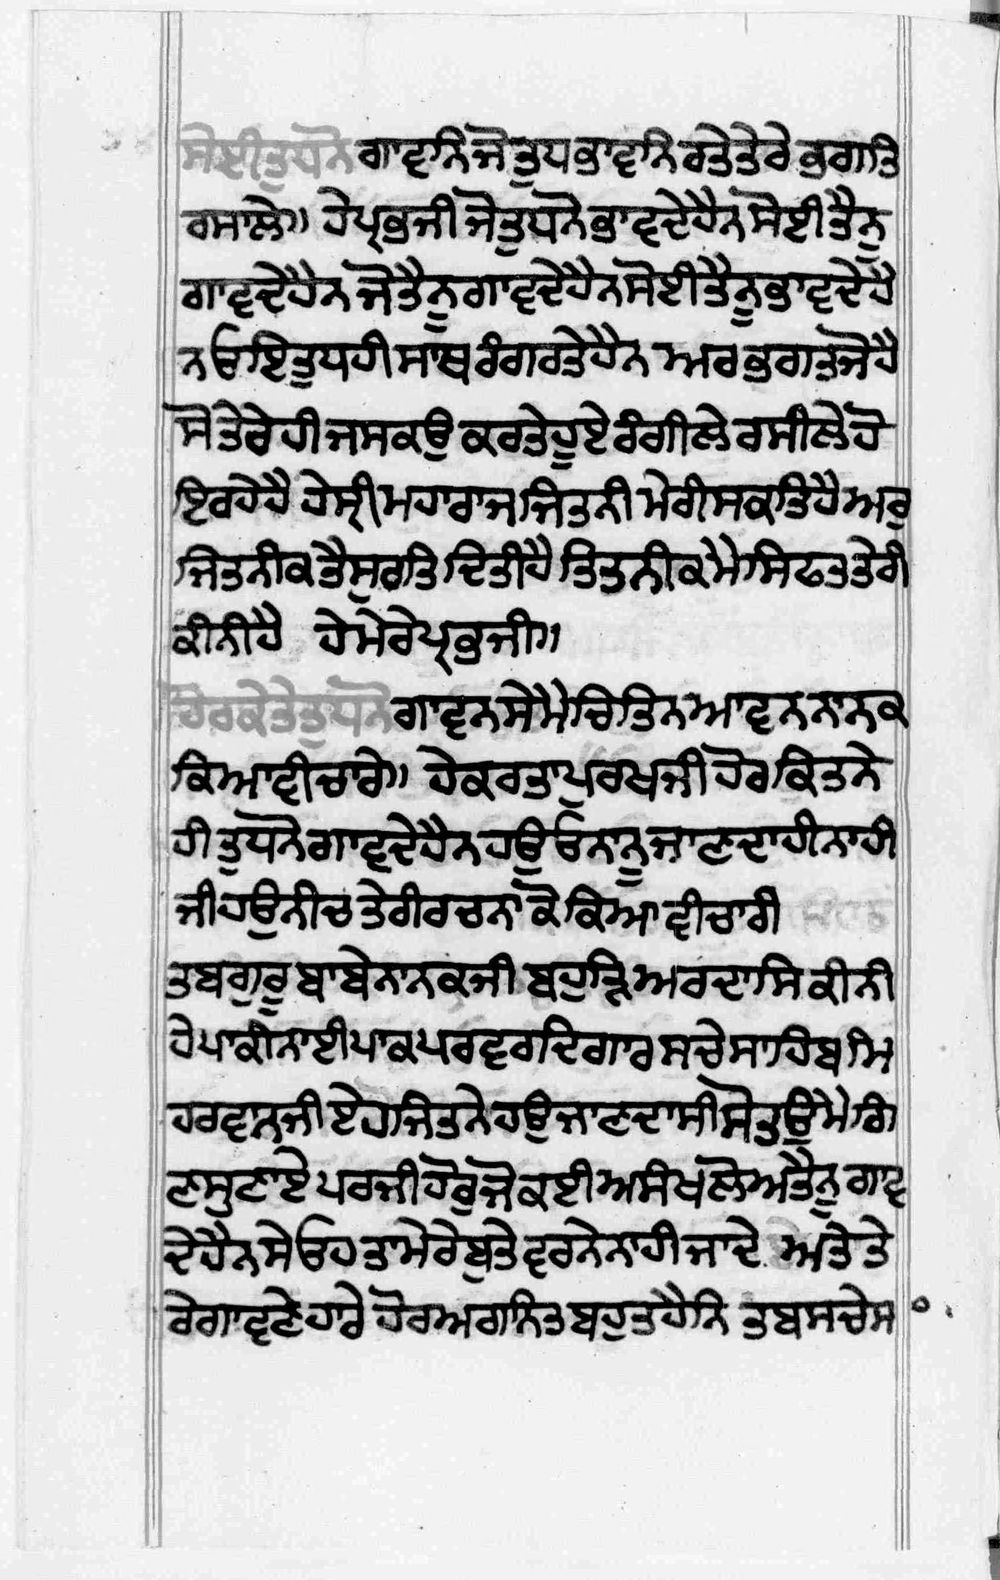 ਸੇਈ ਤੁਧਨੋ ਗਾਵਨਿ ਜੋ ਤੁਧ ਭਾਵਨਿ ਰਤੇ ਤੇਰੇ ਭਗਤਿ
ਰਸਾਲੇ॥ ਹੇ ਪ੍ਰਭੁ ਜੀ ਜੋ ਤੁਧਨੋ ਭਾਵਦੇ ਹੈਨ ਸੋਈ ਤੈਨੂ
ਗਾਵਦੇ ਹੈਨ ਜੋ ਤੈਨੂ ਗਾਵਦੇ ਹੈਨ ਸੋਈ ਤੈਨੂ ਭਾਵਦੇ ਹੈ
ਨ ਓਇ ਤੁਧ ਹੀ ਸਾਥ ਰੰਗ ਰਤੇ ਹੈਨ ਅਰ ਭਗਤ ਜੋ ਹੈ
ਸੋ ਤੇਰੇ ਹੀ ਜਸ ਕਉ ਕਰਤੇ ਹੂਏ ਰੰਗੀਲੇ ਰਸੀਲੇ ਹੋ
ਇ ਰਹੇ ਹੈ ਹੇ ਸ੍ਰੀ ਮਹਾਰਾਜ ਜਿਤਨੀ ਮੇਰੀ ਸਕਤਿ ਹੈ ਅਰੁ
ਜਿਤਨੀਕ ਤੈ ਸੁਰਤਿ ਦਿਤੀ ਹੈ ਤਿਤਨੀਕ ਮੈ ਸਿਫਤ ਤੇਰੀ
ਕੀਨੀ ਹੈ ਹੇ ਮੇਰੇ ਪ੍ਰਭੁ ਜੀ॥
ਹੋਰ ਕੇਤੇ ਤੁਧਨੋ ਗਾਵਨ ਸੇ ਮੈ ਚਿਤਿ ਨ ਆਵਨ ਨਾਨਕ
ਕਿਆ ਵੀਚਾਰੇ॥ ਹੇ ਕਰਤਾ ਪੁਰਖ ਜੀ ਹੋਰ ਕਿਤਨੇ
ਹੀ ਤੁਧਨੋ ਗਾਵਦੇ ਹੈਨ ਹਉ ਓਨਾ ਨੂ ਜਾਣਦਾ ਹੀ ਨਾਹੀ
ਜੀ ਹਉ ਨੀਚ ਤੇਰੀ ਰਚਨਾ ਕੋ ਕਿਆ ਵੀਚਾਰੀ
ਤਬ ਗੁਰੂ ਬਾਬੇ ਨਾਨਕ ਜੀ ਬਹੁੜਿ ਅਰਦਾਸਿ ਕੀਨੀ
ਹੇ ਪਾਕੀ ਨਾਈ ਪਾਕ ਪਰਵਰਦਿਗਾਰ ਸਚੇ ਸਾਹਿਬ ਮਿ
ਹਰਵਾਨ ਜੀ ਏਹ ਜਿਤਨੇ ਹਉ ਜਾਣਦਾ ਸੀ ਸੋ ਤਉ ਮੈ ਗਿ
ਣ ਸੁਣਾਏ ਪਰ ਜੀ ਹੋਰੁ ਜੋ ਕਈ ਅਸੰਖ ਲੋਅ ਤੈਨੂ ਗਾਵ
ਦੇ ਹੈਨ ਸੇ ਓਹ ਤਾ ਮੇਰੇ ਬੁਤੇ ਵਰਨੇ ਨਾਹੀ ਜਾਦੇ ਅਤੇ ਤੇ
ਰੇ ਗਾਵਣੇਹਾਰੇ ਹੋਰ ਅਗਨਿਤ ਬਹੁਤ ਹੈਨਿ ਤਬ ਸਚੇ ਸ